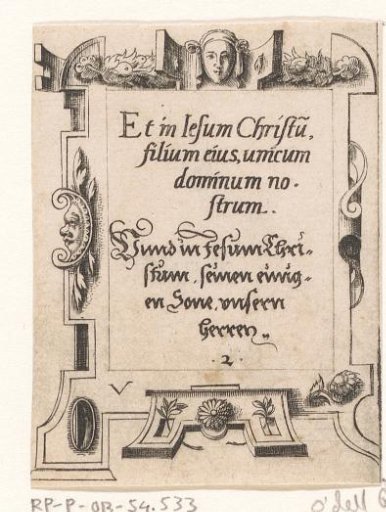 Et in Iesum Christū,
filium eius, unicum
dominum no-
strum.
Vnnd in Jesum Chri-
stum, seinen einig-
en Sone, vnsern
herren.
.2.
RP-P-OB-54.533
o'dell 6